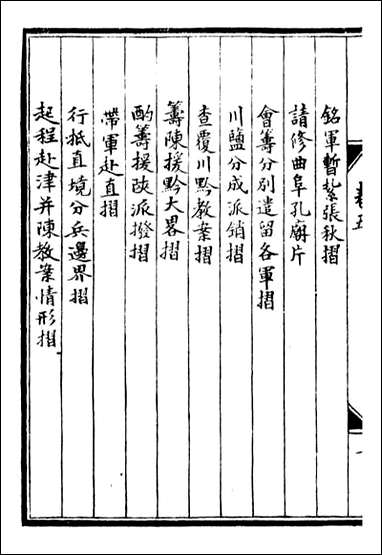 卷五
銘軍暫紮張秋摺
請修曲阜孔廟片
會籌分別遣留各軍摺
川鹽分成派銷摺
查覆川黔教案摺
籌陳援黔大畧摺
酌籌援陝派撥摺
帶軍赴直摺
行抵直境分兵邊界摺
起程赴津并陳教案情形摺